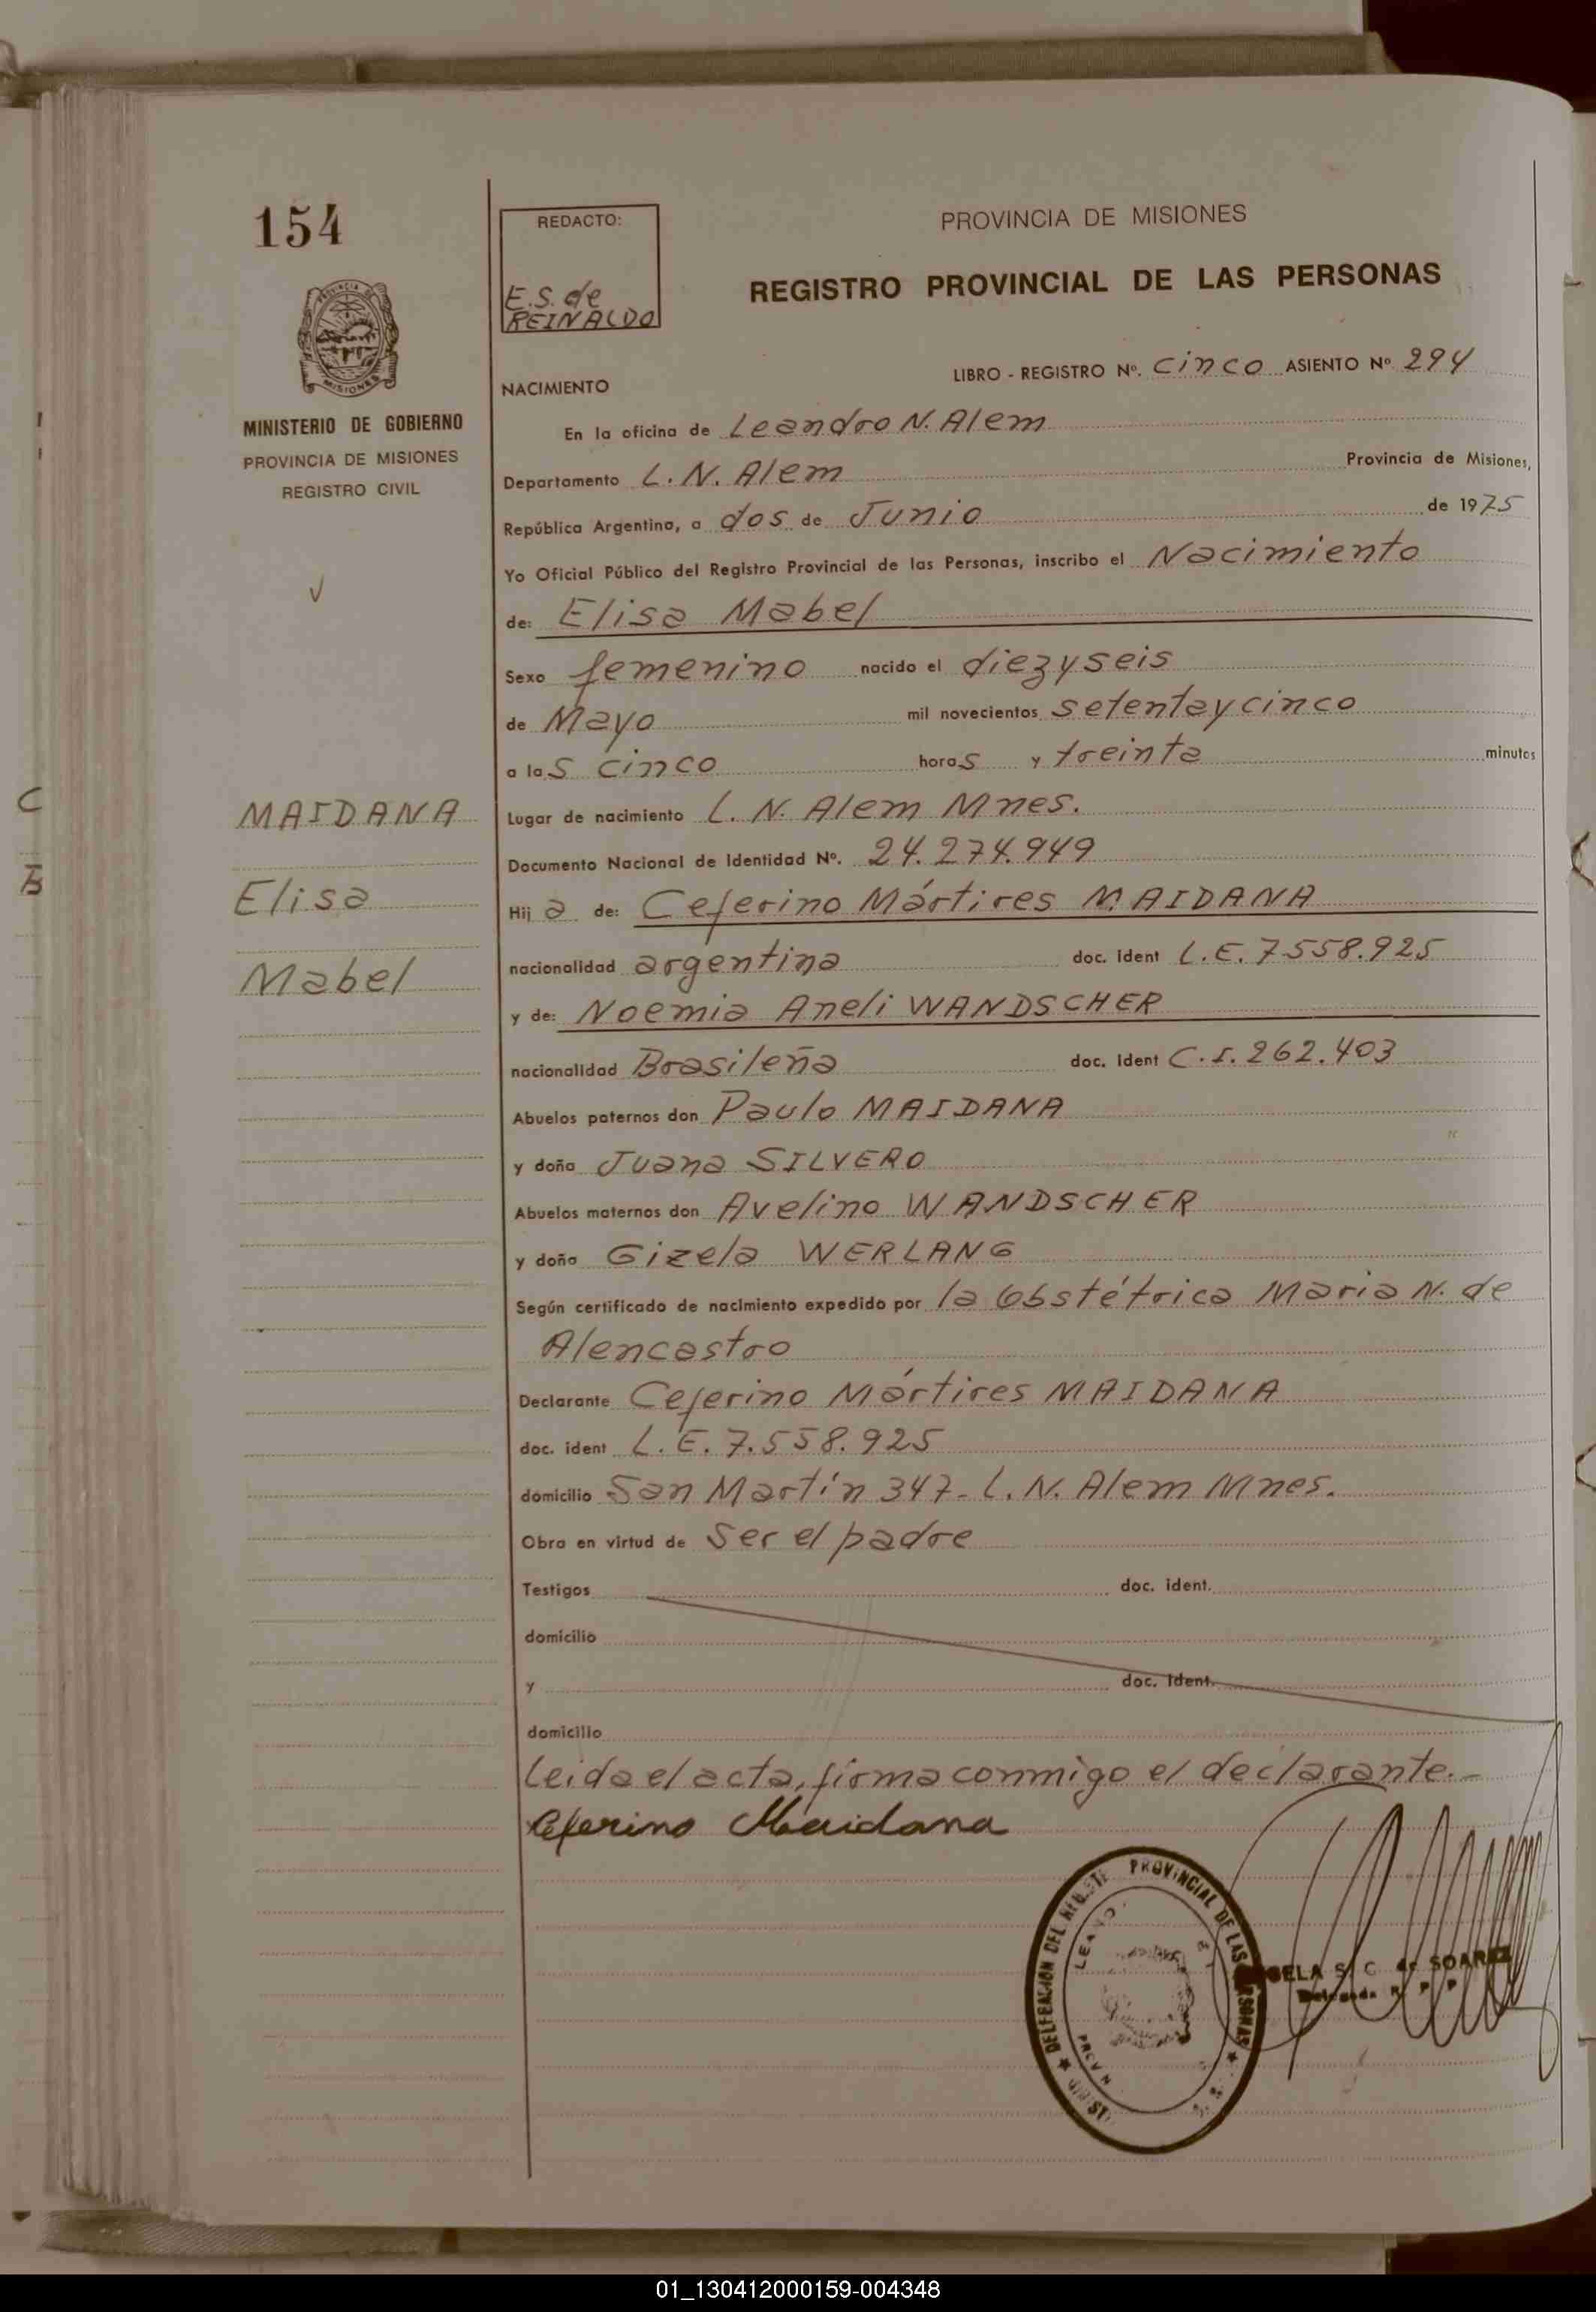 154
REDACTO:
E.S. de
REINALDO
PROVINCIA DE MISIONES
REGISTRO PROVINCIAL DE LAS PERSONAS
MISIONES
MINISTERIO DE GOBIERNO
PROVINCIA DE MISIONES
REGISTRO CIVIL
NACIMIENTO
LIBRO - REGISTRO Nº. cinco ASIENTO Nº 294
En la oficina de Leandro N. Alem
Departamento L. N. Alem Provincia de Misiones,
República Argentina, a dos de Junio de 1975
Yo Oficial Público del Registro Provincial de las Personas, inscribo el Nacimiento
de: Elisa Mabel
Sexo femenino nacido el diezyseis
de Mayo mil novecientos setentaycinco
a las cinco horas y treinta minutos
MAIDANA
Elisa
Mabel
Lugar de nacimiento L. N. Alem Mnes.
Documento Nacional de Identidad Nº. 24.274.949
Hija de: Ceferino Mártires MAIDANA
nacionalidad argentina doc. ident L.E. 7.558.925
y de: Noemia Aneli WANDSCHER
nacionalidad Brasileña doc. ident C.I. 262.403
Abuelos paternos don Paulo MAIDANA
y doña Juana SILVERO
Abuelos maternos don Avelino WANDSCHER
y doña Gizela WERLANG
Según certificado de nacimiento expedido por la Obstétrica Maria N. de
Alencastro
Declarante Ceferino Mártires MAIDANA
doc. ident L. E. 7.558.925
domicilio San Martín 347- L. N. Alem Mnes.
Obra en virtud de ser el padre
Testigos doc. ident.
domicilio
y doc. ident.
domicilio
Leida el acta, firma conmigo el declarante.-
Ceferino Maidana
PROVINCIAL DE LAS PERSONAS
DELEGACION DEL
S. C. de SOAREZ
Delegada R P P
01_130412000159-004348